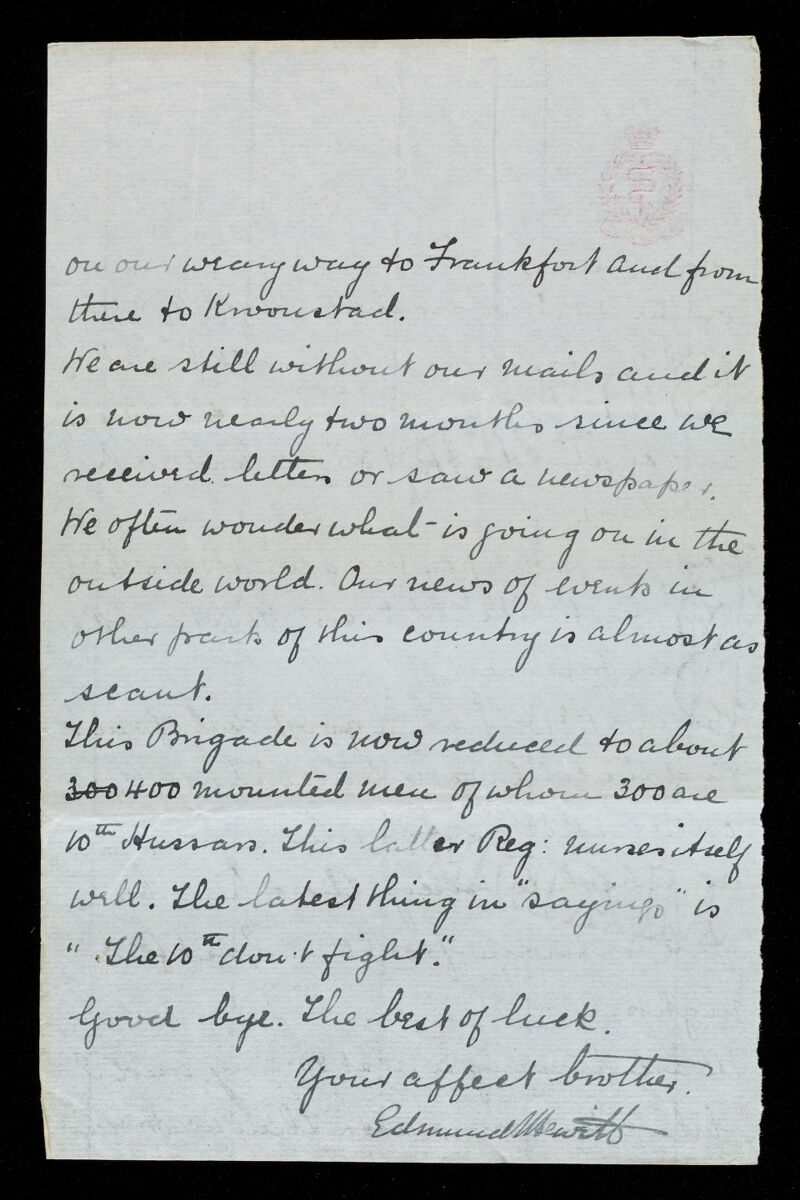 on our weary way to Frankfort and from
there to Kroonstad.
We are still without our mails and it
is now nearly two months since we
received letters or saw a newspaper.
We often wonder what is going on in the
outside world. Our news of events in
other parts of this country is almost as
scant.
This Brigade is now reduced to about
300 400 mounted men of whom 300 are
10th Hussars. This latter Reg: nurses itself
well. The latest thing in "sayings" is
"The 10th don't fight."
Good bye. The best of luck.
Your affect brother.
Edmund Hewitt